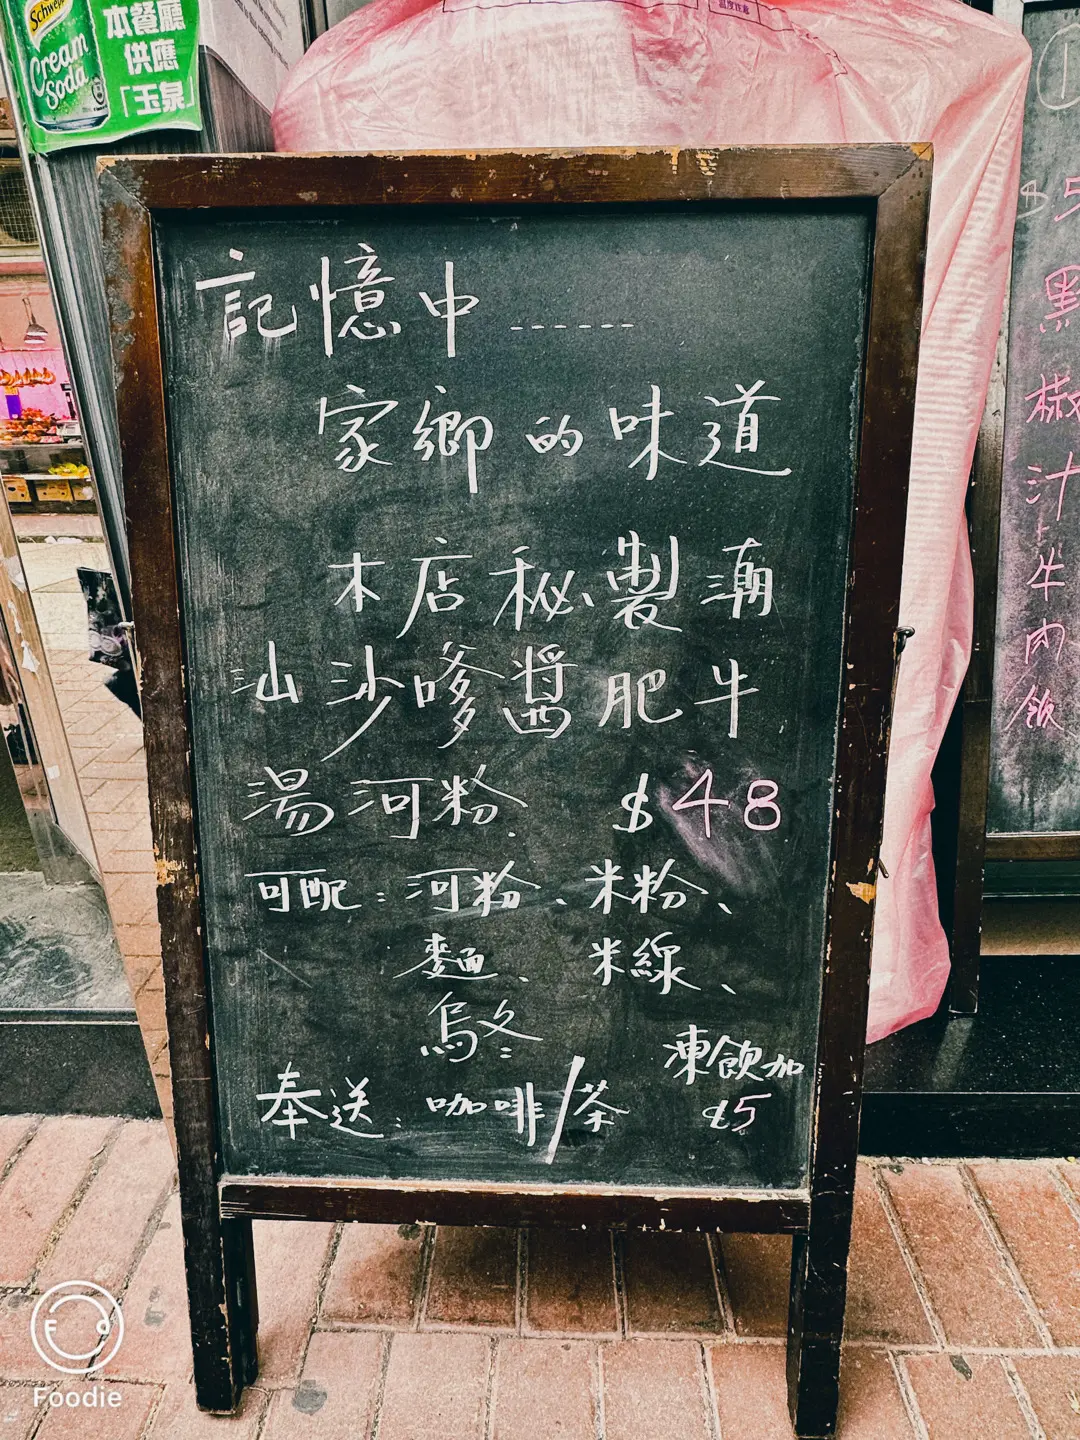 Schweppes
Cream
Soda
本餐廳
供應
「玉泉」
記憶中------
家鄉的味道
本店秘製潮
汕沙嗲醬肥牛
湯河粉. $48
可配:河粉、米粉、
麵、 米線、
烏冬
奉送:咖啡/茶
凍飲加
$5
$5
黑椒汁牛肉飯
Foodie